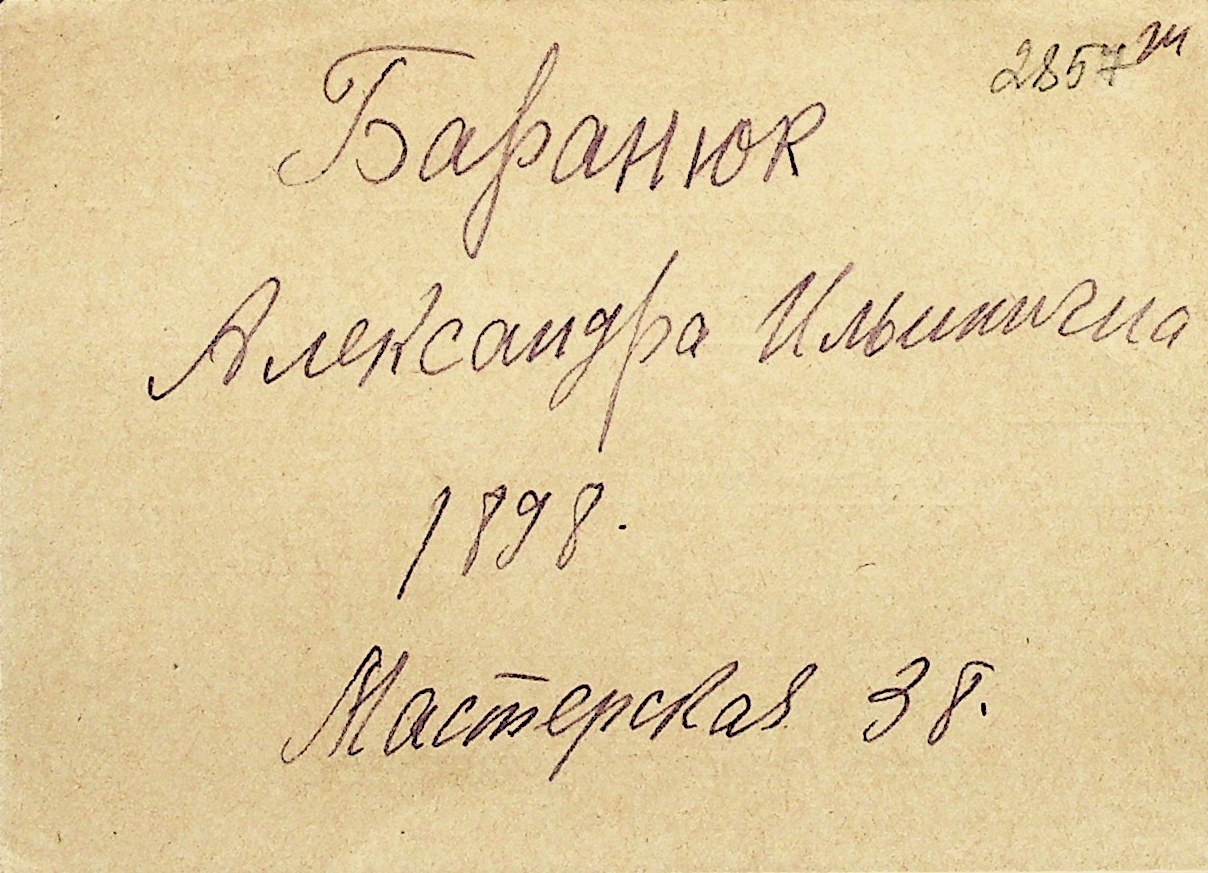 2857
Баранюк
Александра Ильинична
1898.
Мастерская 38.